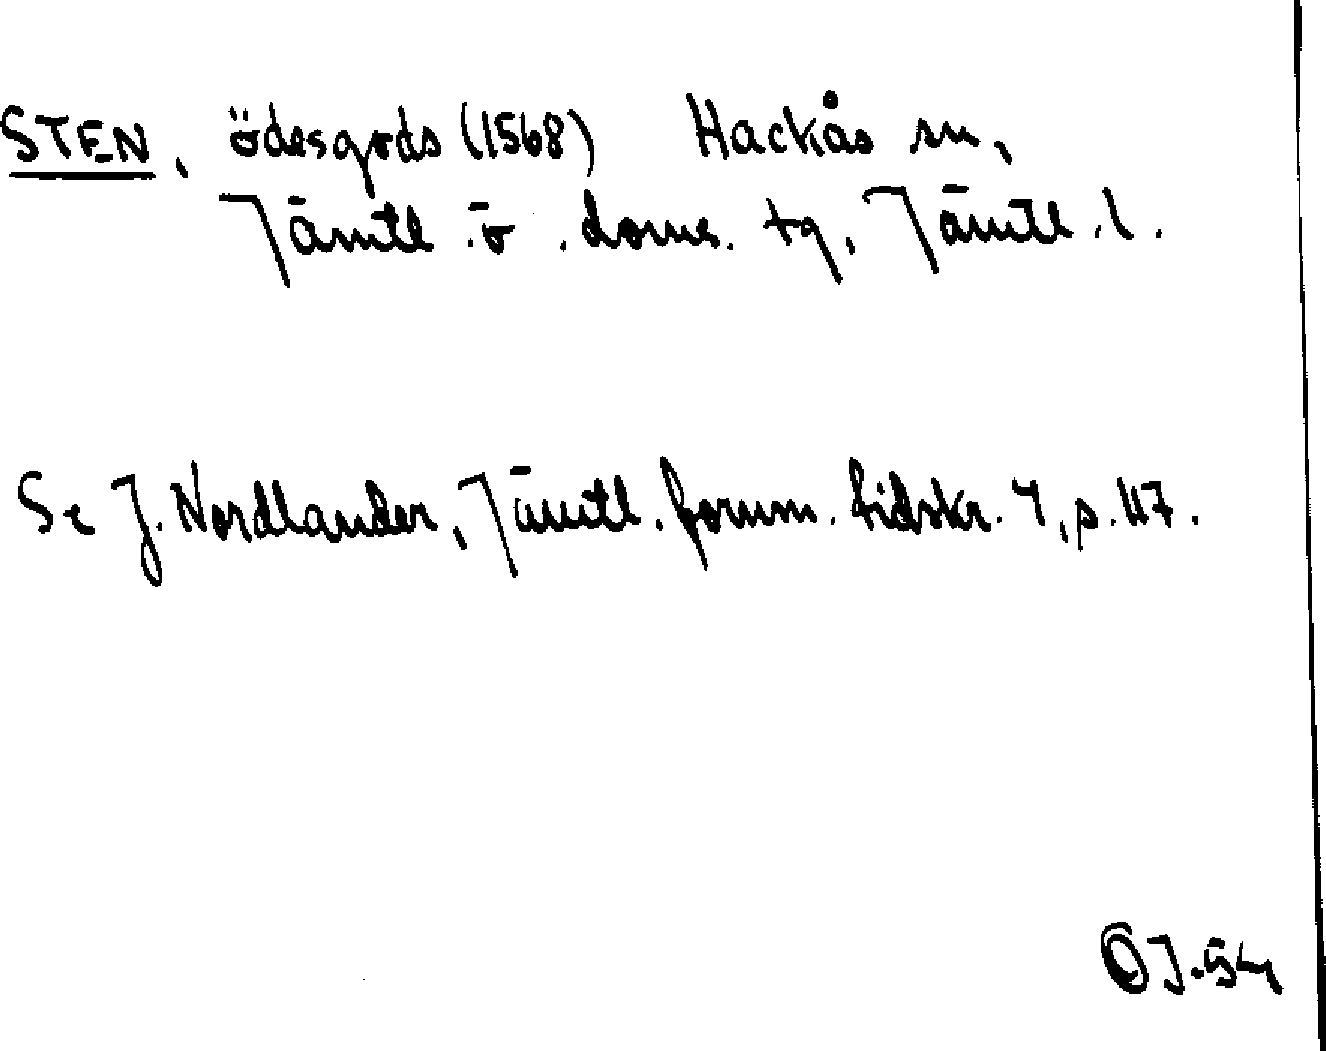 STEN, ödesgods (1568) Hackås sn,
Jämtl. ö. doms. tg, Jämtl. l.
Se J. Nordlander, Jämtl. fornm. tidskr. 4, s. 117.
OJ. 54